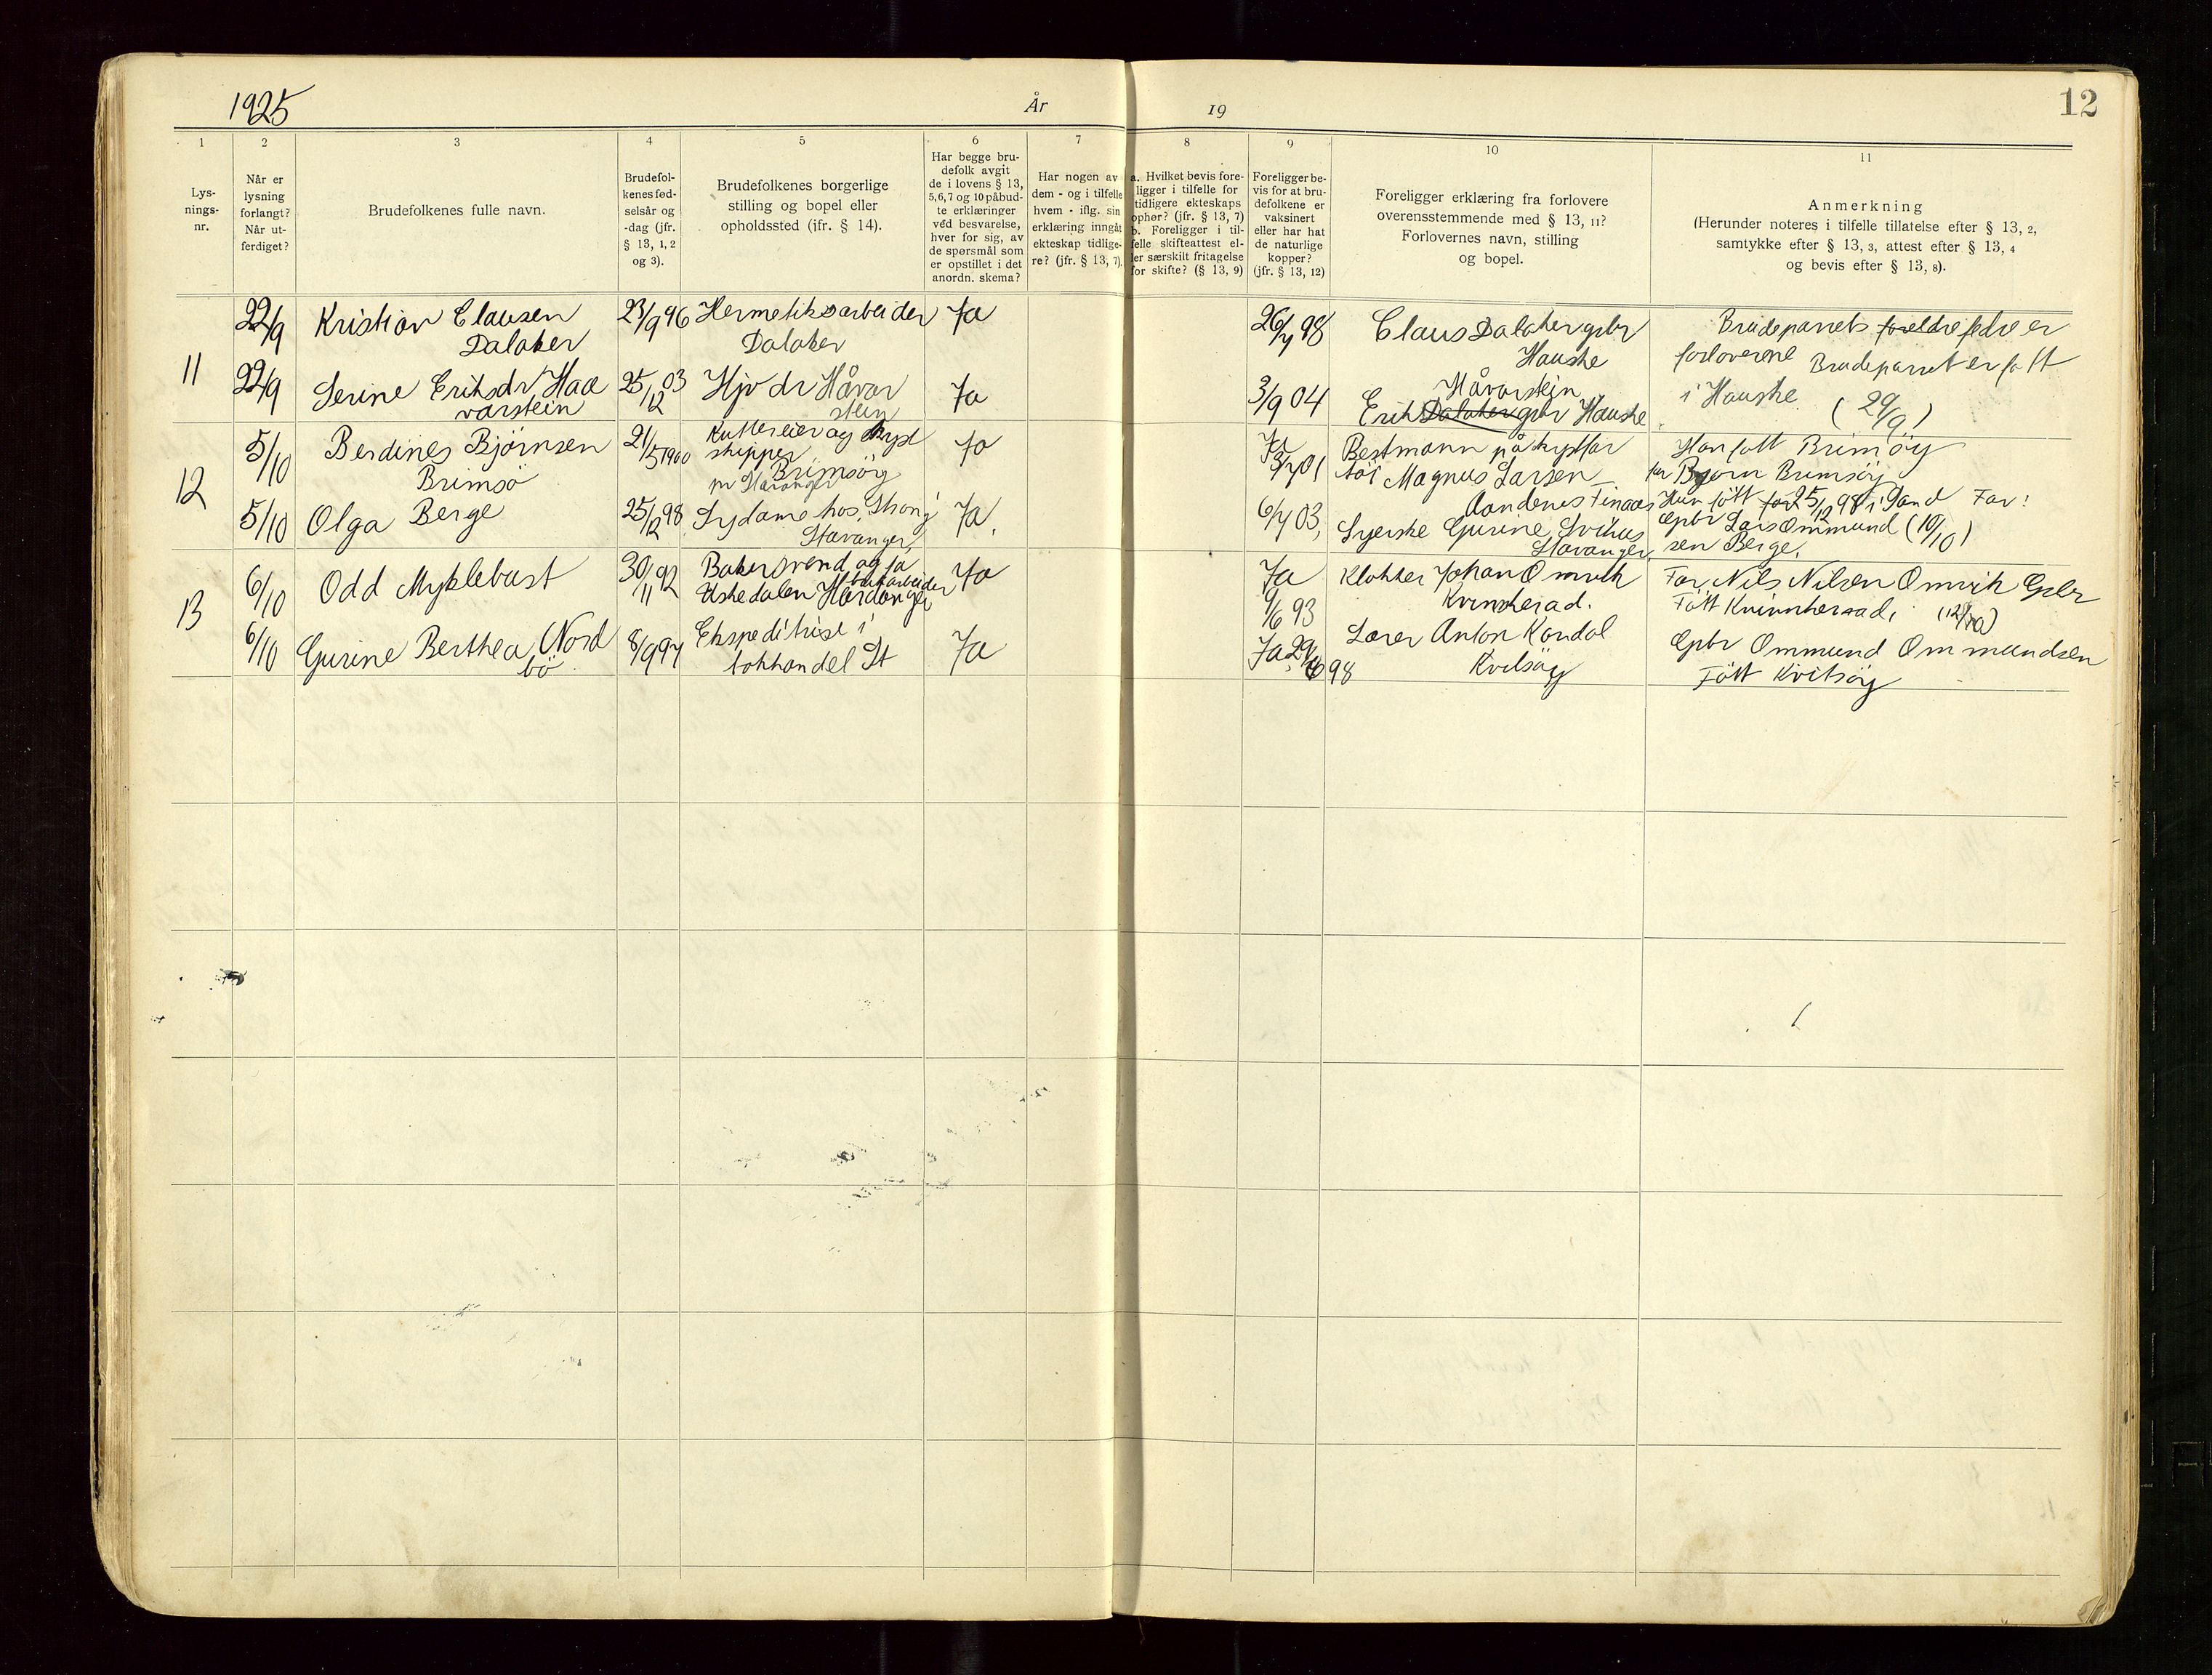 1925
År
19
12
1
Lys-
nings-
nr.
2
Når er
lysning
forlangt?
Når ut-
ferdiget?
3
Brudefolkenes fulle navn.
4
Brudefol-
kenes fød-
selsår og
-dag (jfr.
§ 13, 1, 2
og 3).
5
Brudefolkenes borgerlige
stilling og bopel eller
opholdssted (jfr. § 14).
6
Har begge bru-
defolk avgit
de i lovens § 13,
5, 6, 7 og 10 påbud-
te erklæringer
ved besvarelse,
hver for sig, av
de spørsmål som
er opstillet i det
anordn. skema?
7
Har nogen av
dem - og i tilfelle
hvem - iflg. sin
erklæring inngåt
ekteskap tidlige-
re? (jfr. § 13, 7).
8
a. Hvilket bevis fore-
ligger i tilfelle for
tidligere ekteskaps
ophør? (jfr. § 13, 7)
b. Foreligger i til-
felle skifteattest el-
ler særskilt fritagelse
for skifte? (§ 13, 9)
9
Foreligger be-
vis for at bru-
defolkene er
vaksinert
eller har hat
de naturlige
kopper?
(jfr. § 13, 12)
10
Foreligger erklæring fra forlovere
overensstemmende med § 13, 11?
Forlovernes navn, stilling
og bopel.
11
Anmerkning
(Herunder noteres i tilfelle tillatelse efter § 13, 2,
samtykke efter § 13, 3, attest efter § 13, 4
og bevis efter § 13, 8).
11
22/9
Kristian Clausen
Dalaker
23/9 96
Hermetikarbeider
Dalaker
Ja
26/7 98
Claus Dalaker gbr
Hauske
Brudeparrets foreldre fedre er
forloverne Brudeparret er født
i Hauske (29/9)
22/9
Serine Eriksdr Haa
varstein
25/12 03
Hjv dr Håvar
stein
Ja
3/9 04
Håvarstein
Erik Dalaker gbr Hauske
12
5/10
Berdines Bjørnsen
Brimsö
21/5 1900
Kuttereier og
skipper
Brimsöy
Ja
Ja
3/7 01
Bestmann på
töi Magnus Larsen
Han født Brimsöy
far Bjørn Brimsöy
5/10
Olga Berge
25/12 98
Sydame hos
Stavanger
Ja
6/7 03
Syerske Gurine
Stavanger
Hun født 25/12 98 i Sand Far:
Gbr Lars Ommund (10/10)
sen Berge.
13
6/10
Odd Myklebust
30/11 92
Bakersvend og
Uskedalen Hardanger
Ja
Ja
9/6 93
Klokker Johan Omvik
Kvinherad.
Far Nils Nilsen Omvik Gbr
Født Kvinnherad. (12/10)
6/10
Gurine Berthea Nord
bö
8/9 97
Ekspeditrise i
bokhandel St
Ja
Ja 29/6 98
Lærer Anton Kårdal
Kvitsöy
Gbr Ommund Ommundsen
Født Kvitsöy